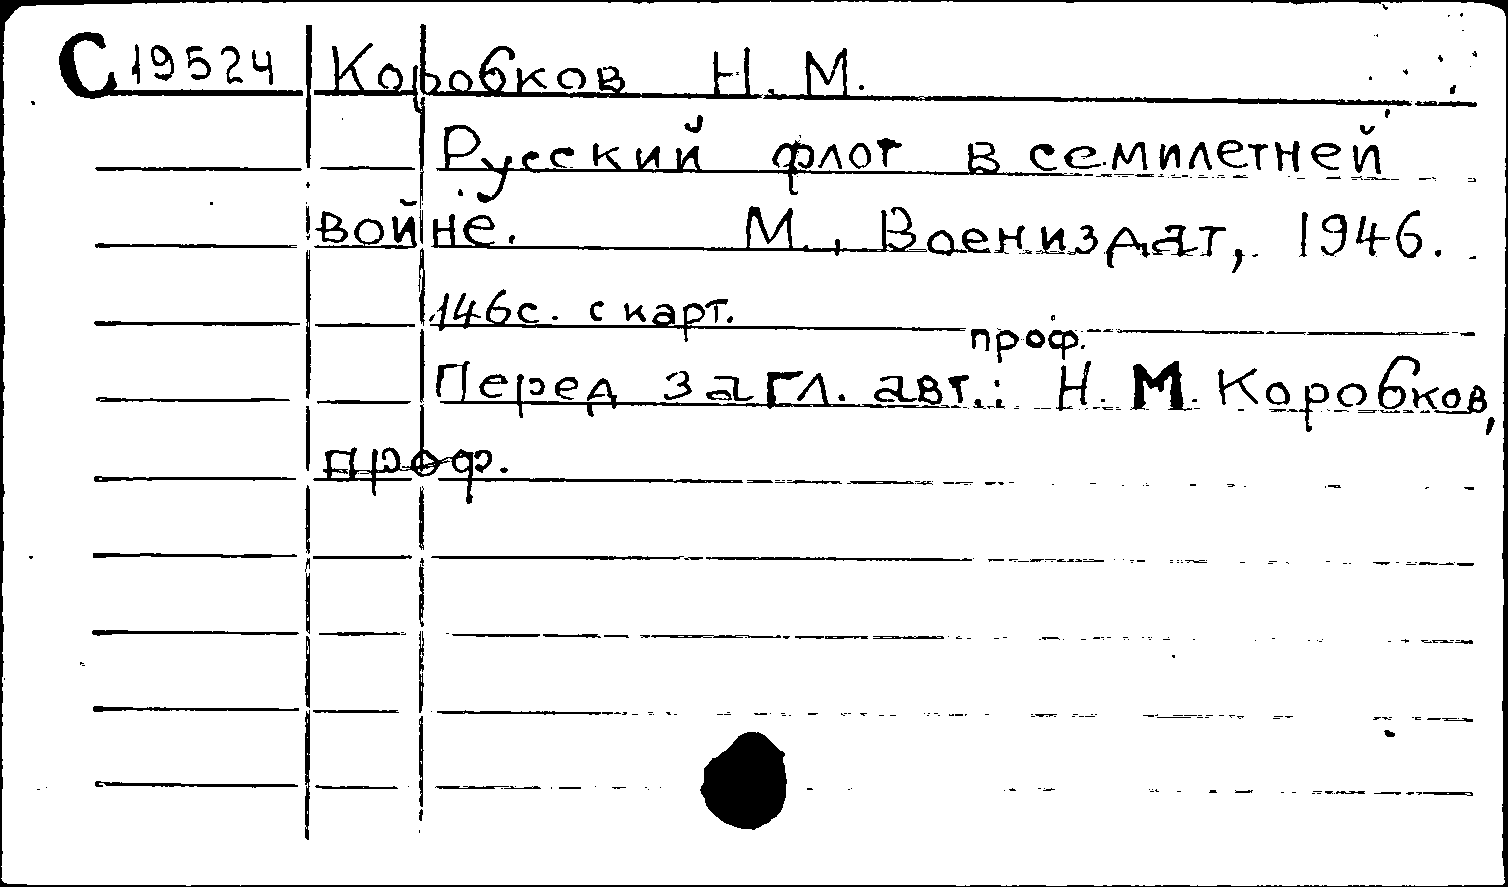 С 19524 Коробков Н. М.
Русский флот в семилетней
войне. М., Воениздат, 1946.
146с. с карт.
проф.
Перед загл. авт.: Н. М. Коробков,
проф.